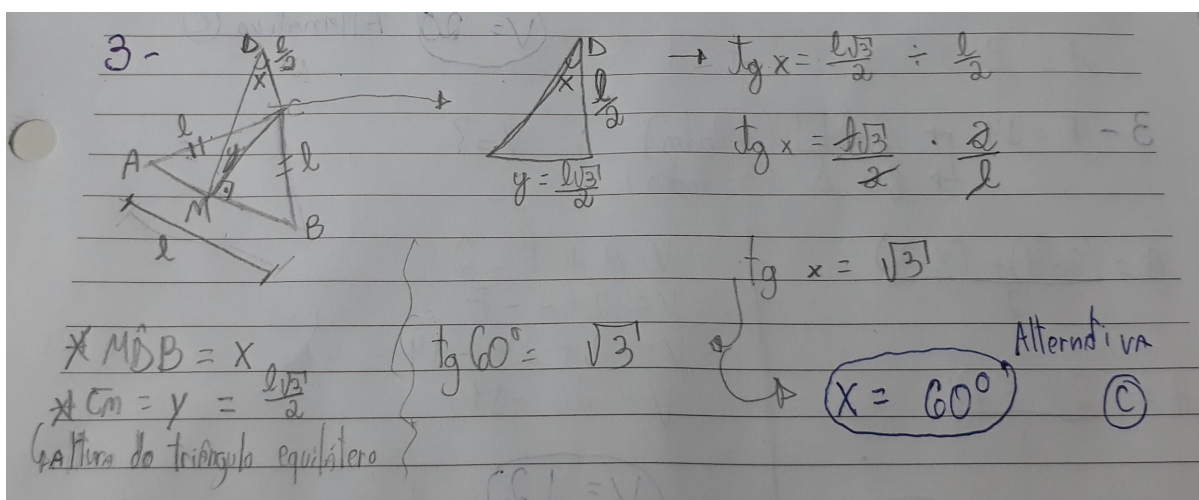 3-
D l/2
x
C
l
A
y
l
M
B
l
D
x
l/2
y = l√3/2
→ tg x = l√3/2 ÷ l/2
tg x = l√3/2 . 2/l
tg x = √3
* MD̂B = x
* C̅m = y = l√3/2
↳ Altura do triângulo equilátero
tg 60° = √3
x = 60°
Alternativa
C